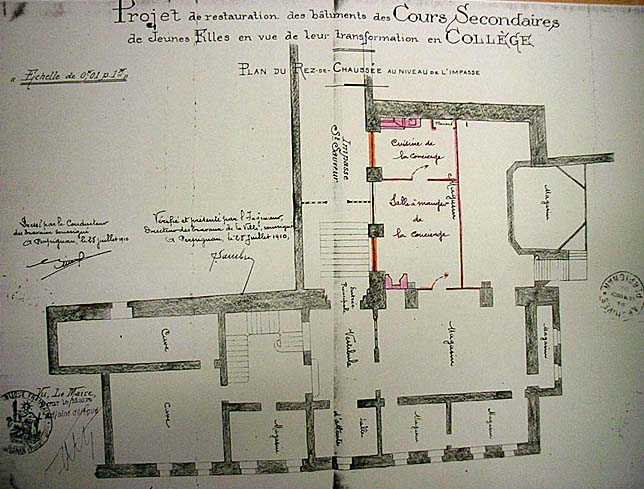 Projet de restauration des bâtiments des Cours Secondaires
de Jeunes Filles en vue de leur transformation en COLLÈGE
« Echelle de 0m01 p. 1m »
PLAN DU REZ-DE-CHAUSSÉE AU NIVEAU DE L'IMPASSE
Impasse
St Sauveur
Placard
Cuisine de
la concierge
Magasin
Salle à manger
de
la concierge
Magasin
Dressé par le Conducteur
des travaux municipal
à Perpignan, le 25 juillet 1910
Vérifié et présenté par l'Ingénieur,
Directeur des travaux de la Ville,
à Perpignan, le 25 juillet 1910,
Entrée
Principale
Vestibule
Magasin
Magasin
Cave
Cave
Magasin
Salle
d'attente
Magasin
Magasin
Vu, Le Maire,
Pour le Maire
L'Adjoint délégué
ARCHIVES
PERPIGNAN